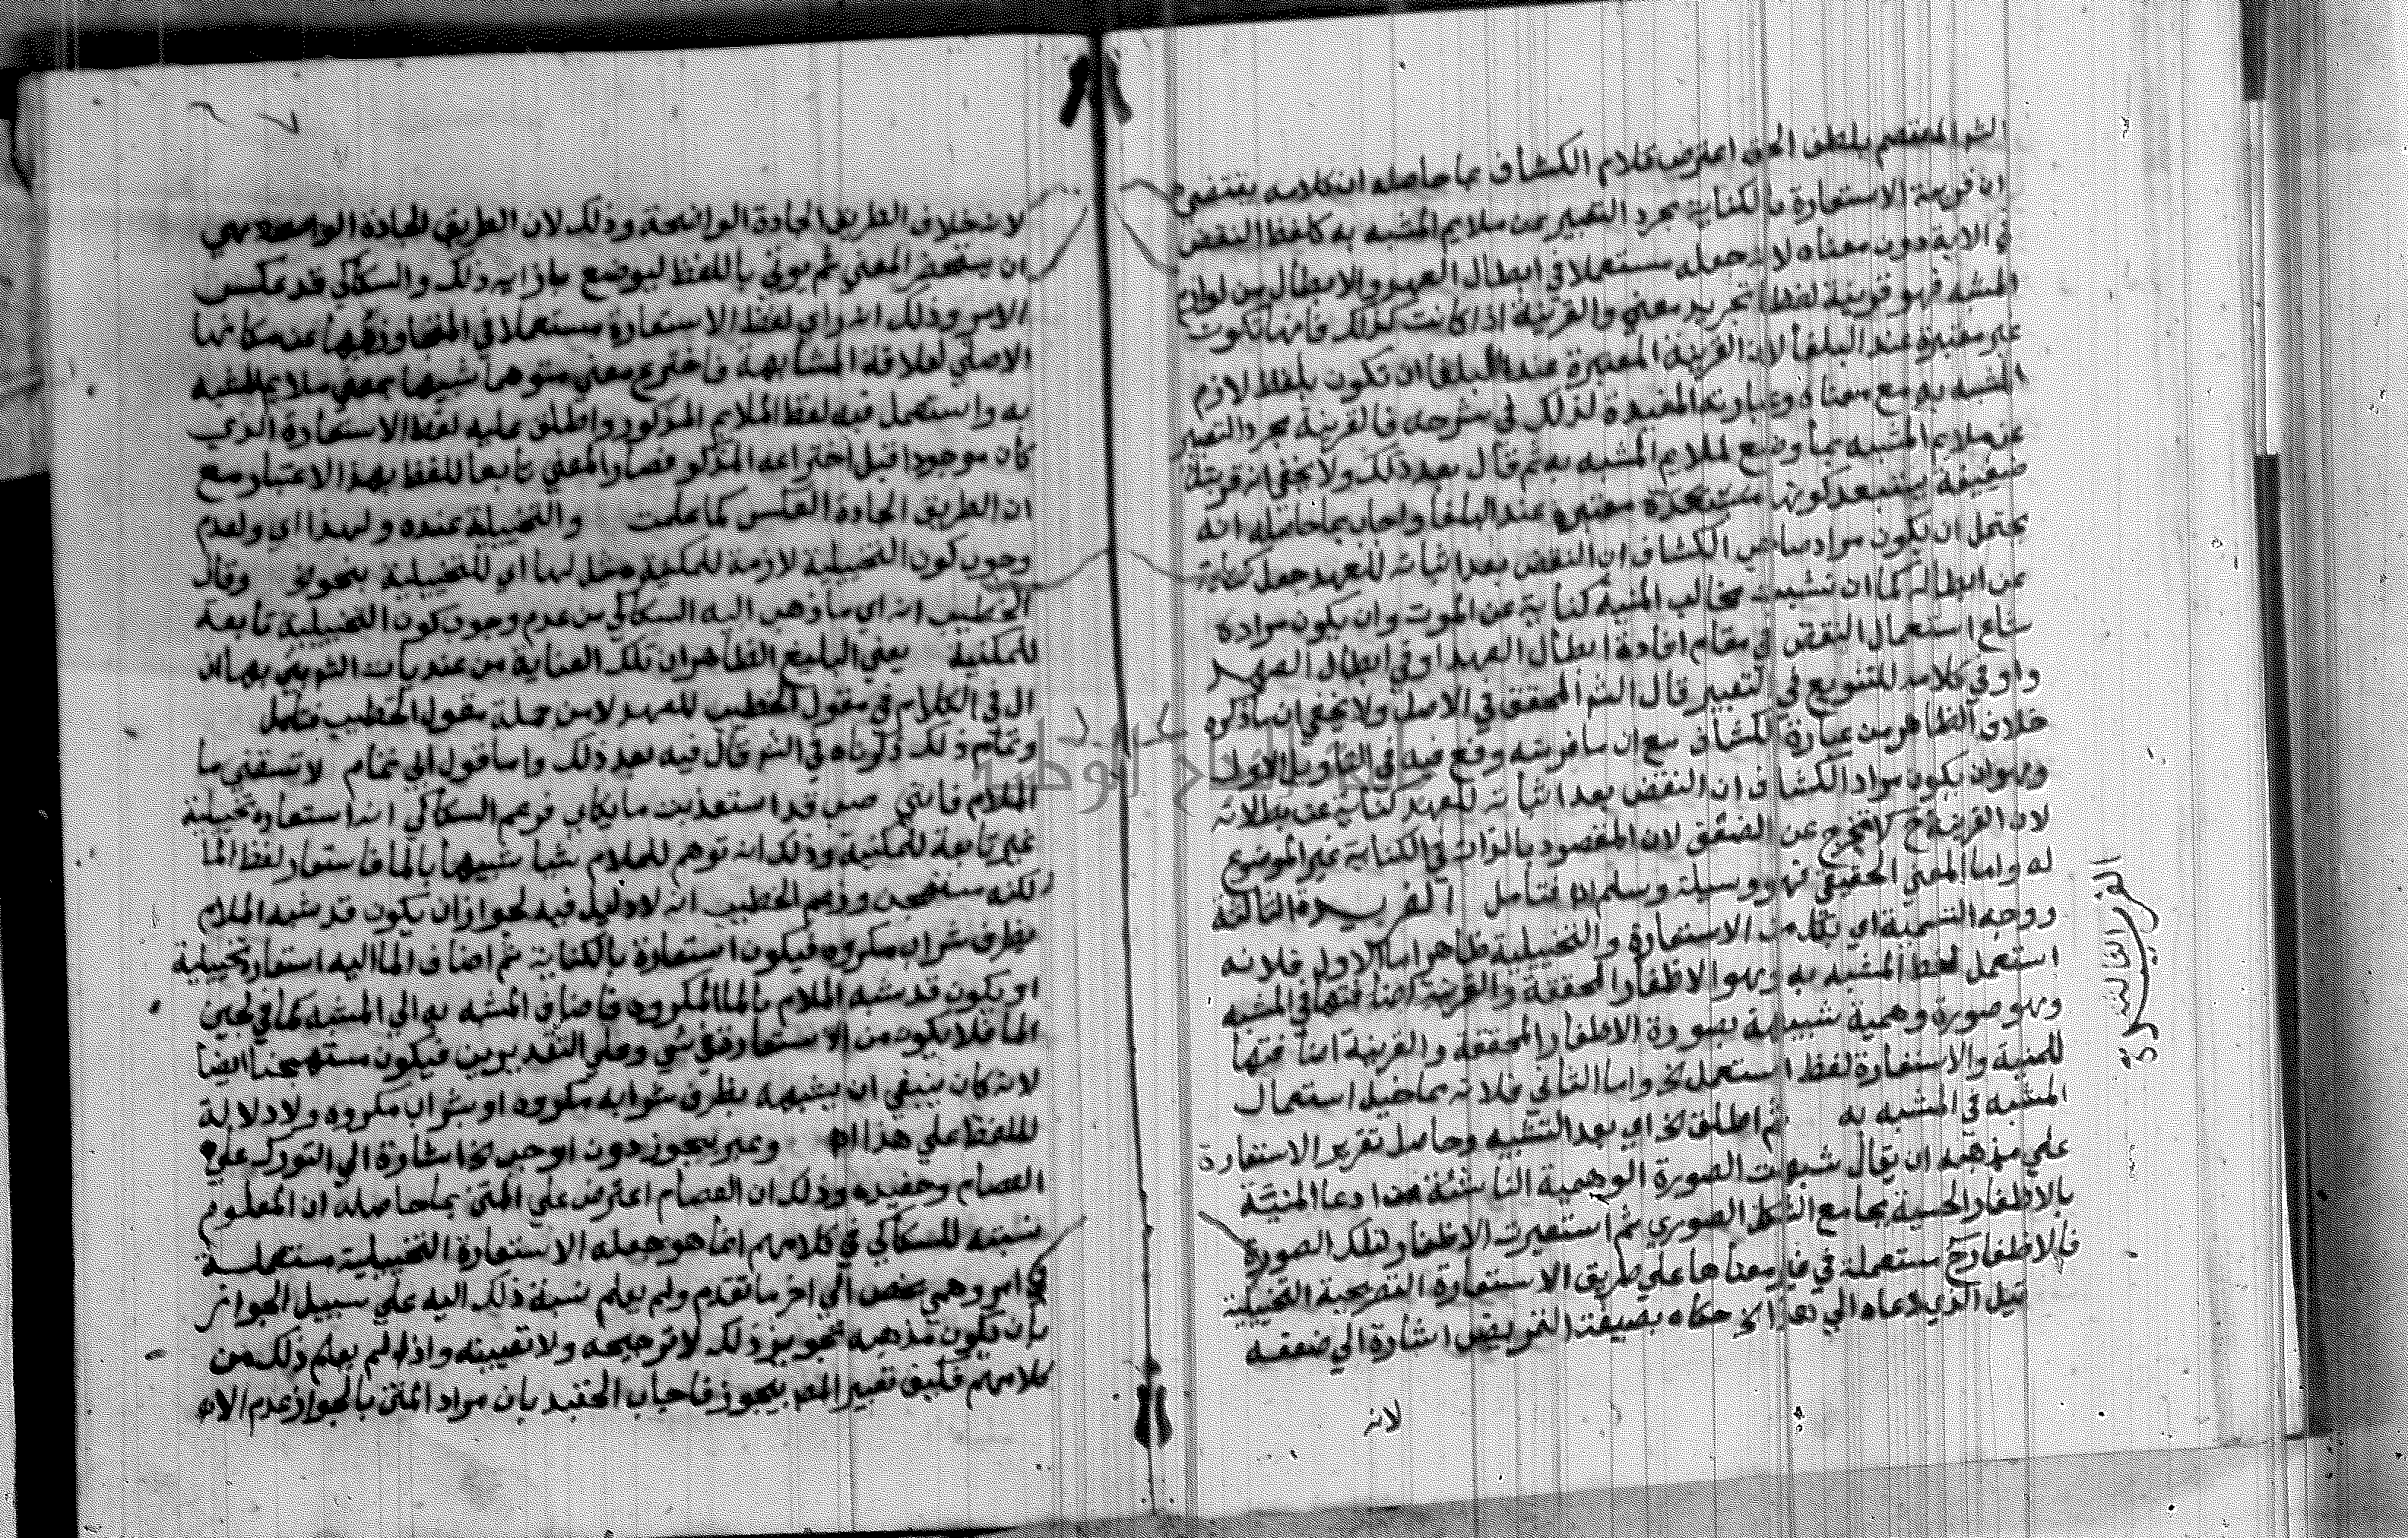 الشر المعتصم بلطف الحق اعترض كلام الكشاف بما حاصله ان كلامه يقتضي
ان قرينة الاستعارة بالكناية مجرد التعبير عن ملايم المشبه به كلفظ النقض
في الاية دون معناه لانه جعله مستعملا في ابطال العهد والابطال من لوازم
المشبه فهو قرينة لفظا تجريد معني والقرينة اذا كانت كذلك فانها تكون
غير معتبرة عند البلغا لان القرينة المعتبرة عند البلغا ان تكون بلفظ لازم
المشبه به مع معناه وعبارته المفيدة لذلك في شرحه فالقرينة مجرد التعبير
عن ملايم المشبه بما وضع لملايم المشبه به ثم قال بعد ذلك ولا يخفي انه قرينة
ضعيفة يستبعد كونها معتبرة عند البلغا واجاب بما حاصله انه
يحتمل ان يكون مراد صاحب الكشاف ان النقض بعد اثباته للعهد جعل كناية
عن ابطاله كما ان نشبت مخالب المنية كناية عن الموت وان يكون مراده
شاع استعمال النقض في مقام افادة ابطال العهد او في ابطال العهد
واو في كلامه للتنويع في التعبير قال الشر المحقق في الاصل ولا يخفي ان ما ذكره
خلاف الظاهر من عبارة الكشاف مع ان ما فر منه وقع فيه في التاويل الاول
وهو ان يكون مراد الكشاف ان النقض بعد اثباته للعهد كناية عن بطلانه
لان القرينة ح لا تخرج عن الضعف لان المقصود بالذات في الكناية غير الموضوع
له واما المعني الحقيقي فهو وسيلة وسلم اه فتامل الفريدة الثالثة
ووجه التسمية اي بكل من الاستعارة والتخييلية ظاهر اما الاول فلانه
استعمل لفظ المشبه به وهو الاظفار المحققة والقرينة اضافتها في المشبه
وهو صورة وهمية شبيهة بصورة الاظفار المحققة والقرينة اضافتها
للمنية والاستعارة لفظ استعمل الخ واما الثاني فلانه بما خيل استعمال
المشبه في المشبه به ثم اطلق الخ اي بعد التشبيه وحاصل تقرير الاستعارة
علي مذهبه ان يقال شبهت الصورة الوهمية الناشئة من ادعا المنية
بالاظفار الحسية بجامع الشكل الصوري ثم استعيرت الاظفار لتلك الصورة
فالاظفار ح مستعملة في غير معناها علي طريق الاستعارة التصريحية التخييلية
قيل الذي دعاه الي هذا الاحكاه بصيغة التمريض اشارة الي ضعفه
لانه
الفريدة الثالثة
لانه خلاف الطريق الجادة الواضحة وذلك لان الطريق الجادة الواضحة هي
ان يستحضر المعني ثم يوتي باللفظ ليوضع بازايه ذلك والسكاكي قد عكس
الامر وذلك انه راي لفظ الاستعارة مستعملا في عن مكانها
الاصلي لعلاقة المشابهة فاخترع معني متوهما شبيها بمعني ملايم المشبه
به واستعمل فيه لفظ الملايم المذكور واطلق عليه لفظ الاستعارة الذي
كان موجودا قبل اختراعه المذكور فصار المعني تابعا للفظ بهذا الاعتبار مع
ان الطريق الجادة العكس كما علمت والتخييلية عنده ولهذا اي ولعدم
وجوب كون التخييلية لازمة للمكنية مثل لها اي للتخييلية بنحو الخ وقال
الخطيب انه اي ما ذهب اليه السكاكي من عدم وجوب كون التخييلية تابعة
للمكنية يعني البليغ الظاهر ان تلك العناية من عنديات الشر بني بها ان
ال في الكلام في مقول الخطيب للعهد لا من جملة مقول الخطيب فتامل
وتمام ذلك ذكرناه في الشر قال فيه بعد ذلك واما قول ابي تمام لا تسقني ما
الملام فانني صب قد استعذبت ما بكايي فزعم السكاكي انه استعارة تخييلية
غير تابعة للمكنية وذلك انه توهم للملام شيا شبيها بالما فاستعار لفظ الما
لكنه مستهجن وزعم الخطيب انه لا دليل فيه لجواز ان يكون قد شبه الملام
بظرف شراب مكروه فيكون استعارة بالكناية ثم اضاف الما اليه استعارة تخييلية
او يكون قد شبه الملام بالما المكروه فاضاف المشبه به الي المشبه كما في لجين
الما فلا يكون من الاستعارة في شي وعلي التقديرين فيكون مستهجنا ايضا
لانه كان ينبغي ان يشبهه بظرف شرابه مكروه او بشراب مكروه ولا دلالة
للفظ علي هذا اه وعبر بيجوز دون اوجب الخ اشارة الي التورك علي
العصام وحفيده وذلك ان العصام اعترض علي المتن بما حاصله ان المعلوم
نسبته للسكاكي في كلامهم انما هو جعله الاستعارة التخييلية مستعملة
في امر وهمي محض الي اخر ما تقدم ولم يعلم نسبة ذلك اليه علي سبيل الجواز
بان يكون مذهبه تجويز ذلك لا ترجيحه ولا تعيينه واذا لم يعلم ذلك من
كلامهم فكيف تعبير المص بيجوز فاجاب الحفيد بان مراد المتن بالجواز عدم الامـ